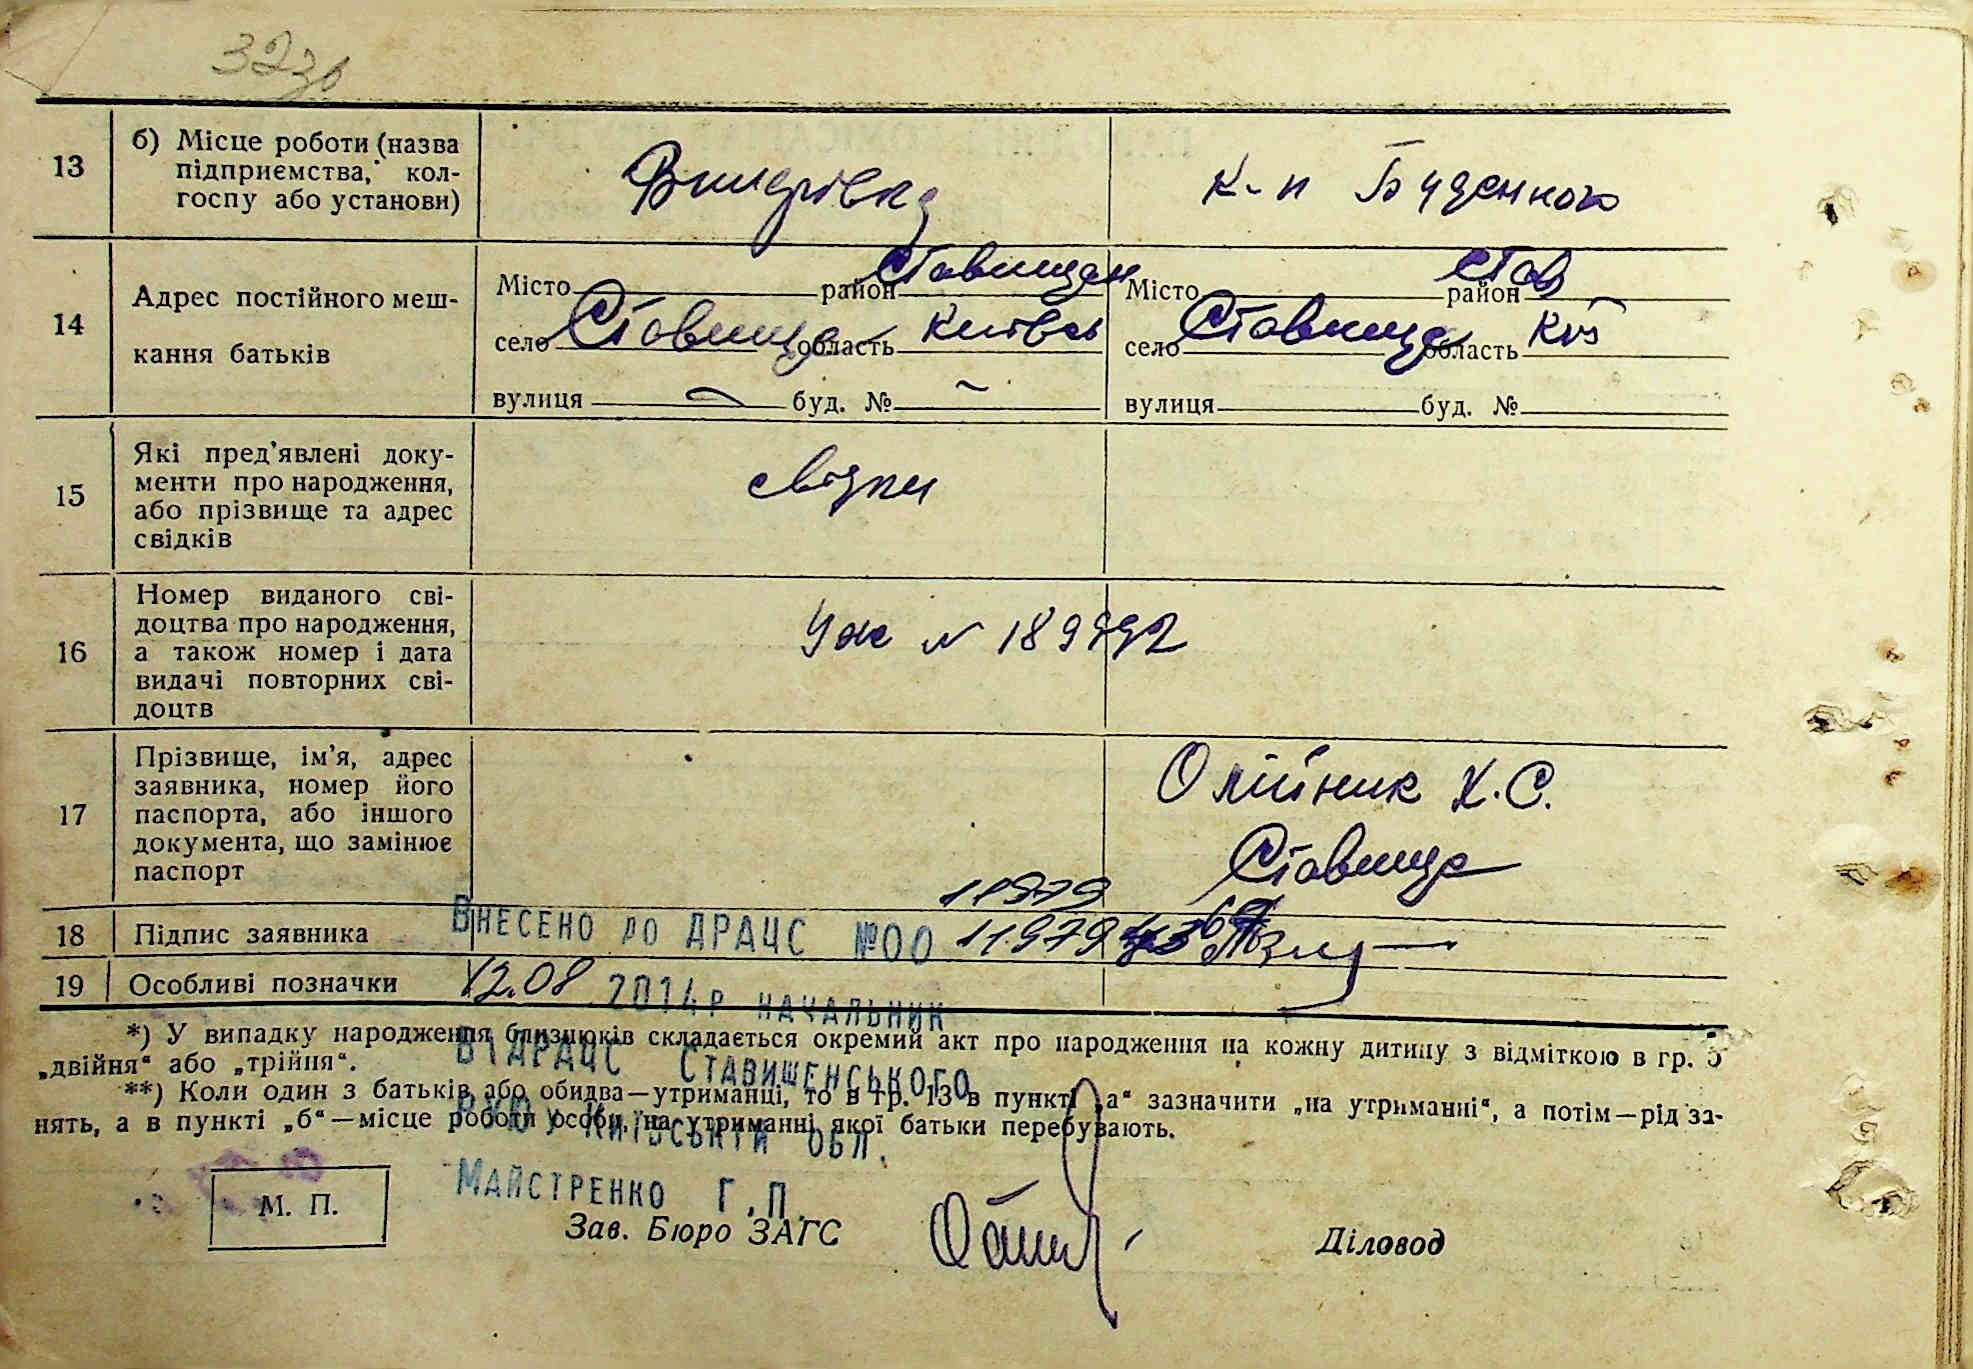 32зв
13
б) Місце роботи (назва
підприємства, кол-
госпу або установи)
к-п Буденного
14
Адрес постійного меш-
кання батьків
Місто район Ставищан
село Ставище область Київсь
вулиця — буд. № —
Місто район Став
село Ставище область Киї
вулиця буд. №
15
Які пред'явлені доку-
менти про народження,
або прізвище та адрес
свідків
свідки
16
Номер виданого сві-
доцтва про народження,
а також номер і дата
видачі повторних сві-
доцтв
17
Прізвище, ім'я, адрес
заявника, номер його
паспорта, або іншого
документа, що замінює
паспорт
Олійник Х. С.
Ставище
11979
18
Підпис заявника
Внесено до ДРАЦС №00 11979
19
Особливі позначки
12.08 2014р начальник
ВДРАЦС Ставищенського
РУЮ у Київській обл.
Майстренко Г.П.
*) У випадку народження близнюків складається окремий акт про народження на кожну дитину з відміткою в гр. 5
„двійня“ або „трійня“.
**) Коли один з батьків, або обидва—утриманці, то в гр. 13 в пункті „а“ зазначити „на утриманні“, а потім—рід за-
нять, а в пункті „б“—місце роботи особи, на утриманні якої батьки перебувають.
М. П.
Зав. Бюро ЗАГС
Діловод